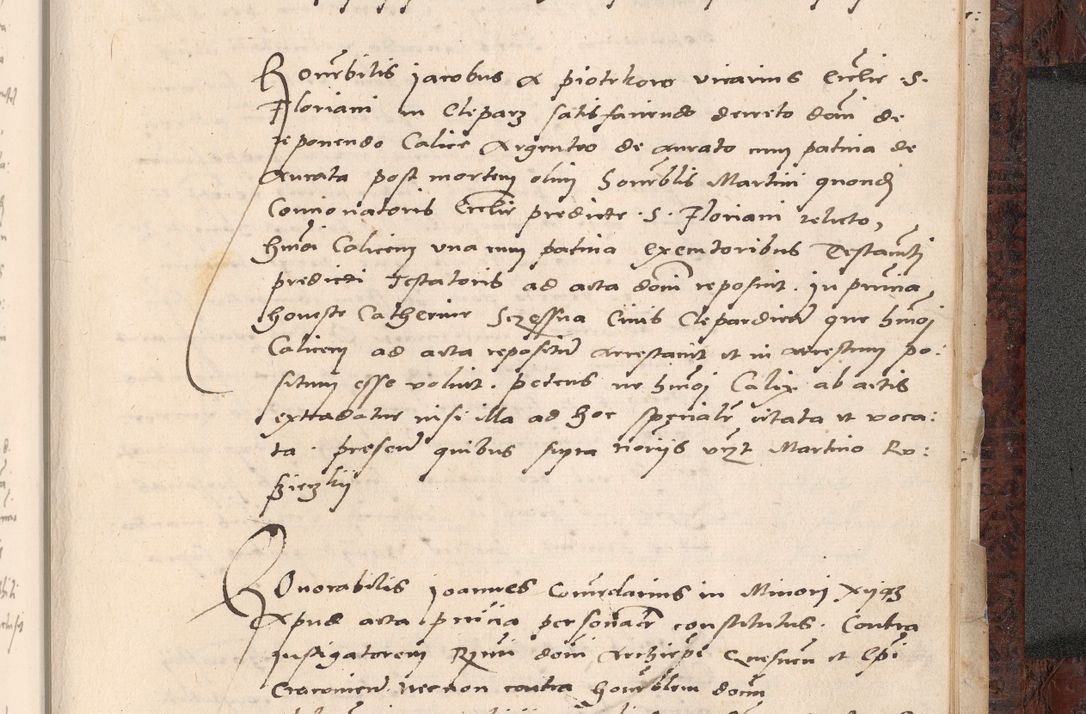 Honorbilis Jacobus A piotrkow vicarius Ecclie S.
Floriani in Cleparz satisfaciendo decreto dom de
reponendo Calice Argenteo de Aurato cum patina de
Aurata post mortem olim Honorblis Martini quond
Concionatoris Ecclie predicte S. Floriani relicto,
hmoi Calicem una cum patina executoribus Testamti
predicti Testatoris ad acta dom reposuit. In pncia
honeste Catherine Civis Clepardien que hmoi
Calicem ad acta repositu arrestauit et in arrestum po:
situm esse voluit. petens ne hmoi Calix ab actis
extradatur nisi illa ad hoc spetialr citata et voca:
ta. presen quibus supra noriis vczt Martino Ro:
Honorabilis Joannes Comendarius in Minori Xyqz
Apud acta pncia personalr constitutus. Contra
Instigatorem Rmi dom Archiepi Gnesnen et Epi
Cracovien necnon contra honorblem dom